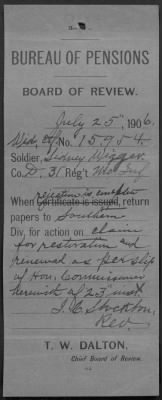 BUREAU OF PENSIONS
BOARD OF REVIEW.
July 25", 1906.
Wid. Ctf. No. 15954
Soldier, Sidney
Co. D, 31 Reg't
rejection is completed
When Certificate is issued, return
papers to Southern
Div. for action on claim
for restoration and
renewal as per slip
of Hon. Commissioner
herewith of 23" inst.
J. C. Stockton,
Rev.
T. W. DALTON,
Chief Board of Review.